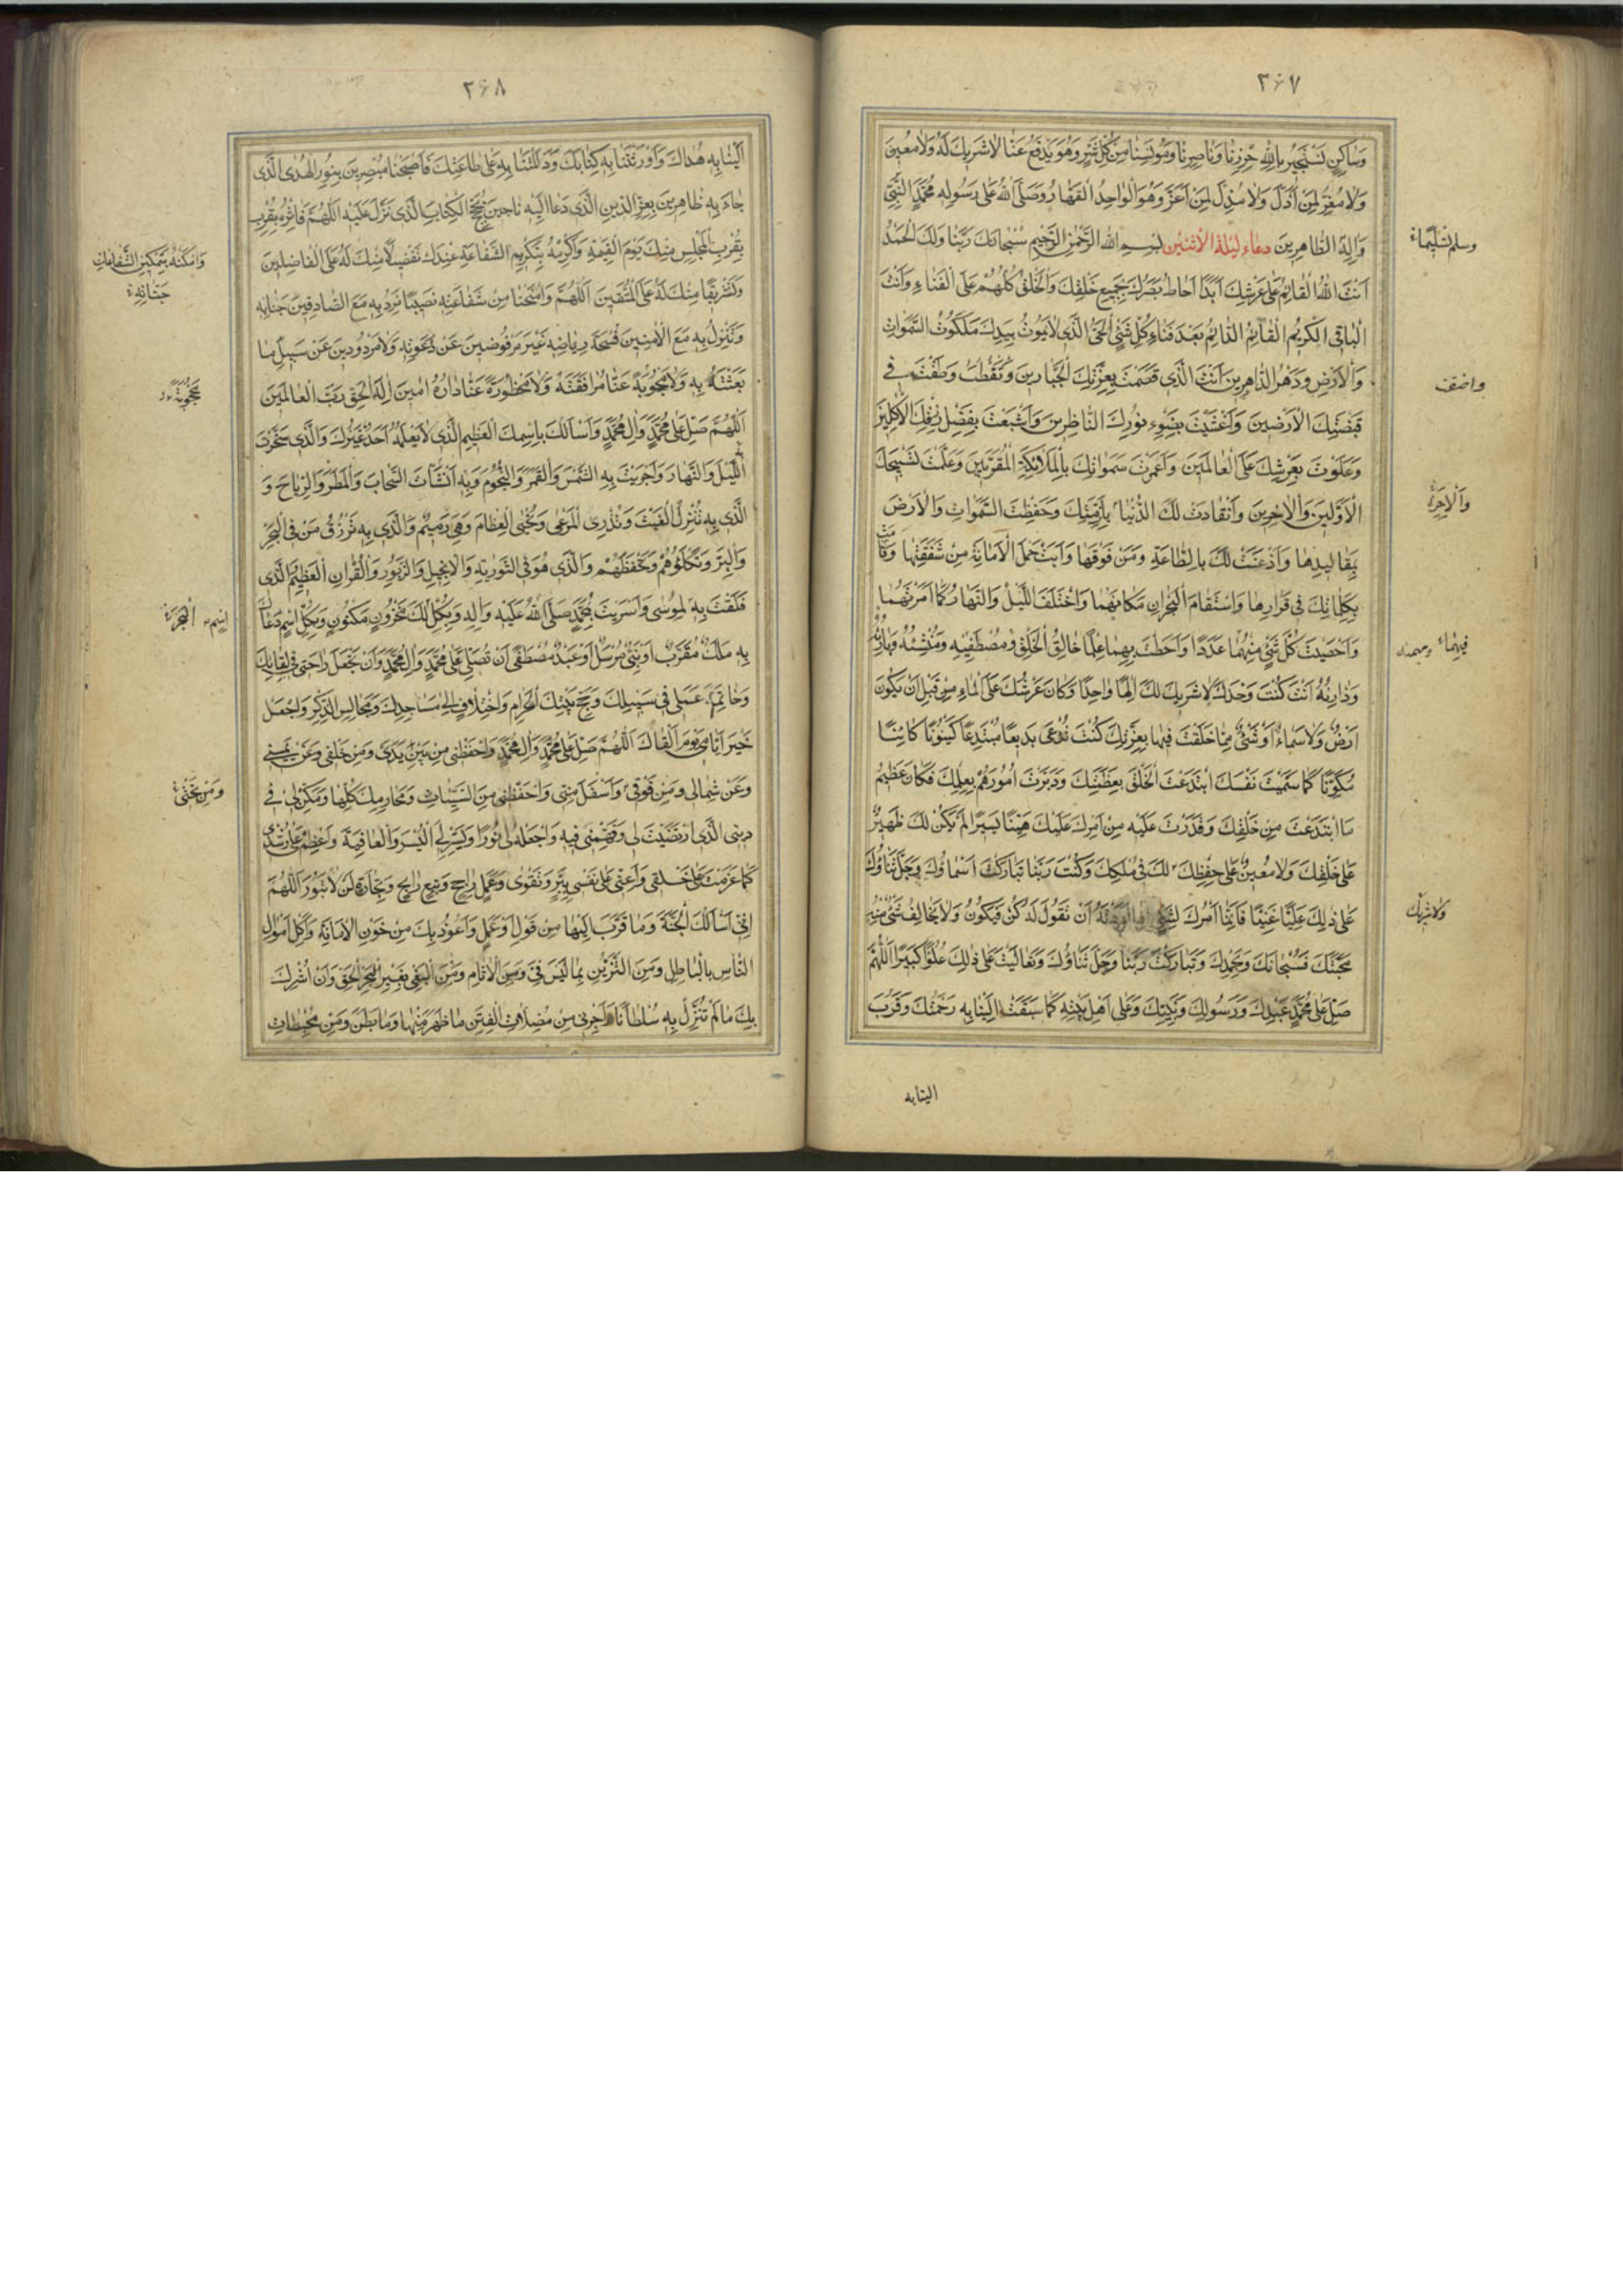 ٣۶٧
وَسٰاكِنٍ نَسْتَجيرُ بِاللهِ حِرْزِنٰا وَنٰاصِرِنٰا وَمُونِسِنٰا مِنْ كُلِّ شَرٍّ وَهُوَ يَدْفَعُ عَنّٰا لٰا شَريكَ لَهُ وَلٰا مُعينَ
وَلٰا مُعِزَّ لِمَنْ اَذَلَّ وَلٰا مُذِلَّ لِمَنْ اَعَزَّ وَهُوَ الْوٰاحِدُ الْقَهّٰارُ وَصَلَّى اللهُ عَلٰى رَسُولِهِ مُحَمَّدٍ النَّبِيِّ
وَالِهِ الطّٰاهِرينَ دعاء ليلة الاثنين بسم الله الرَّحْمٰنِ الرَّحيمِ سُبْحٰانَكَ رَبَّنٰا وَلَكَ الْحَمْدُ
وسلم تسليما
اَنْتَ اللهُ الْقٰائِمُ عَلٰى عَرْشِكَ اَبَدًا اَحٰاطَ بَصَرُكَ بِجَميعِ خَلْقِكَ وَالْخَلْقُ كُلُّهُمْ عَلَى الْفَنٰاءِ وَاَنْتَ
الْبٰاقِى الْكَريمُ الْقٰائِمُ الدّٰائِمُ بَعْدَ فَنٰاءِ كُلِّ شَيْءٍ الْحَىُّ الَّذى لٰا يَمُوتُ بِيَدِكَ مَلَكُوتُ السَّمٰوٰاتِ
وَالْاَرْضِ وَدَهْرُ الدّٰاهِرينَ اَنْتَ الَّذى قَصَمْتَ بِعِزَّتِكَ الْجَبّٰارينَ فى
واضفت
قَبْضَتِكَ الْاَرَضينَ وَاَغْشَيْتَ بِضَوْءِ نُورِكَ النّٰاظِرينَ وَاَشْبَعْتَ بِفَضْلِ رِزْقِكَ الْاٰكِلينَ
وَعَلَوْتَ بِعَرْشِكَ عَلَى الْعٰالَمينَ وَاَعْمَرْتَ سَمٰوٰاتِكَ بِالْمَلٰائِكَةِ الْمُقَرَّبينَ وَعَلَّمْتَ تَسْبيحَكَ
الْاَوَّلينَ وَالْاٰخِرينَ وَانْقٰادَتْ لَكَ الدُّنْيٰا بِاَزِمَّتِكَ وَحَفِظْتَ السَّمٰوٰاتِ وَالْاَرْضَ
وَالْاٰخِرَةُ
بِمَقٰاليدِهٰا وَاَذْعَنَتْ لَكَ بِالطّٰاعَةِ وَمَنْ فَوْقَهٰا وَاَبَتْ حَمْلَ الْاَمٰانَةِ مِنْ شَفَقَتِهٰا وَقٰامَتْ
بِكَلِمٰاتِكَ فى قَرٰارِهٰا وَاسْتَقٰامَ الْبَحْرٰانِ مَكٰانَهُمٰا وَاخْتَلَفَ اللَّيْلُ وَالنَّهٰارُ كَمٰا اَمَرْتَهُمٰا
وَاَحْصَيْتَ كُلَّ شَيْءٍ مِنْهُمٰا عَدَدًا وَاَحَطْتَ بِهِمٰا عِلْمًا خٰالِقُ الْخَلْقِ وَمُصْطَفيهِ وَمُنْشِئُهُ وَبٰارِئُهُ
فيهما
وَذٰارِئُهُ اَنْتَ كُنْتَ وَحْدَكَ لٰا شَريكَ لَكَ اِلٰهًا وٰاحِدًا وَكٰانَ عَرْشُكَ عَلَى الْمٰاءِ مِنْ قَبْلِ اَنْ يَكُونَ
اَرْضٌ وَلٰا سَمٰاءٌ اَوْ شَيْءٌ مِمّٰا خَلَقْتَ فيهٰا بِعِزَّتِكَ كُنْتَ تُدْعٰى بَديعًا مُبْتَدِعًا كَيْنُونًا كٰائِنًا
مُكَوِّنًا كَمٰا سَمَّيْتَ نَفْسَكَ ابْتَدَعْتَ الْخَلْقَ بِعَظَمَتِكَ وَدَبَّرْتَ اُمُورَهُمْ بِعِلْمِكَ فَكٰانَ عَظيمُ
مَا ابْتَدَعْتَ مِنْ خَلْقِكَ وَقَدَّرْتَ عَلَيْهِ مِنْ اَمْرِكَ عَلَيْكَ هَيِّنًا يَسيرًا لَمْ يَكُنْ لَكَ ظَهيرٌ
عَلٰى خَلْقِكَ وَلٰا مُعينٌ عَلٰى حِفْظِكَ لَكَ فى مُلْكِكَ وَكُنْتَ رَبَّنٰا تَبٰارَكَتْ اَسْمٰاؤُكَ وَجَلَّ ثَنٰاؤُكَ
ولا شريك
عَلٰى ذٰلِكَ عَلِيًّا غَنِيًّا فَاِنَّمٰا اَمْرُكَ لِشَيْءٍ اِذٰا اَرَدْتَهُ اَنْ تَقُولَ لَهُ كُنْ فَيَكُونُ وَلٰا يُخٰالِفُ شَيْءٌ مِنْهُ
مَحَبَّتَكَ فَسُبْحٰانَكَ وَبِحَمْدِكَ وَتَبٰارَكْتَ رَبَّنٰا وَجَلَّ ثَنٰاؤُكَ وَتَعٰالَيْتَ عَلٰى ذٰلِكَ عُلُوًّا كَبيرًا اَللّٰهُمَّ
صَلِّ عَلٰى مُحَمَّدٍ عَبْدِكَ وَرَسُولِكَ وَنَبِيِّكَ وَعَلٰى اَهْلِ بَيْتِهِ كَمٰا سَبَقَتْ اِلَيْنٰا بِهِ رَحْمَتُكَ وَقَرُبَ
الينابه
٢۶٨
اِلَيْنٰا بِهِ هُدٰاكَ وَاَوْرَثْتَنٰا بِهِ كِتٰابَكَ وَدَلَلْتَنٰا بِهِ عَلٰى طٰاعَتِكَ فَاَصْبَحْنٰا مُبْصِرينَ بِنُورِ الْهُدٰى الَّذى
جٰاءَ بِهِ ظٰاهِرينَ بِعِزِّ الدّينِ الَّذى دَعٰا اِلَيْهِ نٰاجينَ بِحُجَجِ الْكِتٰابِ الَّذى نَزَلَ عَلَيْهِ اَللّٰهُمَّ فَاٰثِرْهُ بِقُرْبِ
بِقُرْبِ الْمَجْلِسِ مِنْكَ يَوْمَ الْقِيٰمَةِ وَاَكْرِمْهُ بِتَكْريمِ الشَّفٰاعَةِ عِنْدَكَ تَفْضيلًا مِنْكَ لَهُ عَلَى الْفٰاضِلينَ
وَامْكُنْهُ بِتَمْكينِ الشَّفٰاعٰاتِ
وَتَشْريفًا مِنْكَ لَهُ عَلَى الْمُتَّقينَ اَللّٰهُمَّ وَامْنَحْنٰا مِنْ شَفٰاعَتِهِ نَصيبًا نَرِدُ بِهِ مَعَ الصّٰادِقينَ جِنٰانَهُ
جنانه
وَنَنْزِلُ بِهِ مَعَ الْاٰمِنينَ فُسْحَةَ رِيٰاضِهِ غَيْرَ مَرْفُوضينَ عَنْ دَعْوَتِهِ وَلٰا مَرْدُودينَ عَنْ سَبيلِ مٰا
بَعَثْتَهُ بِهِ وَلٰا مَحْجُوبَةً عَنّٰا مُرٰافَقَتُهُ وَلٰا مَحْظُورَةً عَنّٰا دٰارُهُ اٰمينَ اِلٰهَ الْحَقِّ رَبَّ الْعٰالَمينَ
مَحْجُوبَةً
اَللّٰهُمَّ صَلِّ عَلٰى مُحَمَّدٍ وَاٰلِ مُحَمَّدٍ وَاَسْاَلُكَ بِاسْمِكَ الْعَظيمِ الَّذى لٰا يَعْلَمُهُ اَحَدٌ غَيْرُكَ وَالَّذى سَخَّرْتَ
اللَّيْلَ وَالنَّهٰارَ وَاَجْرَيْتَ بِهِ الشَّمْسَ وَالْقَمَرَ وَالنُّجُومَ وَبِهِ اَنْشَأْتَ السَّحٰابَ وَالْمَطَرَ وَالرِّيٰاحَ وَ
الَّذى بِهِ تُنْزِلُ الْغَيْثَ وَتُذْرِى الْمَرْعٰى وَتُحْيِى الْعِظٰامَ وَهِىَ رَميمٌ وَالَّذى بِهِ تَرْزُقُ مَنْ فِى الْبَحْرِ
وَالْبَرِّ وَتَكْلَؤُهُمْ وَتَحْفَظُهُمْ وَالَّذى هُوَ فِى التَّوْرٰيةِ وَالْاِنْجيلِ وَالزَّبُورِ وَالْقُرْاٰنِ الْعَظيمِ الَّذى
فَلَقْتَ بِهِ لِمُوسٰى وَاَسْرَيْتَ بِمُحَمَّدٍ صَلَّى اللهُ عَلَيْهِ وَاٰلِهِ وَبِكُلِّ لَكَ مَخْزُونٍ مَكْنُونٍ وَبِكُلِّ اسْمٍ دَعٰاكَ
اسم البحر
بِهِ مَلَكٌ مُقَرَّبٌ اَوْ نَبِىٌّ مُرْسَلٌ اَوْ عَبْدٌ مُصْطَفًى اَنْ تُصَلِّىَ عَلٰى مُحَمَّدٍ وَاٰلِ مُحَمَّدٍ وَاَنْ تَجْعَلَ رٰاحَتى فى لِقٰائِكَ
وَخٰاتِمَ عَمَلى فى سَبيلِكَ وَحَجِّ بَيْتِكَ الْحَرٰامِ وَاخْتِلٰافٍ اِلٰى مَسٰاجِدِكَ وَمَجٰالِسِ الذِّكْرِ وَاجْعَلْ
خَيْرَ اَيّٰامى يَوْمَ اَلْقٰاكَ اَللّٰهُمَّ صَلِّ عَلٰى مُحَمَّدٍ وَاٰلِ مُحَمَّدٍ وَاحْفَظْنى مِنْ بَيْنِ يَدَىَّ وَمِنْ خَلْفى وَعَنْ يَمينى
وَعَنْ شِمٰالى وَمِنْ فَوْقى وَاَسْفَلَ مِنّى وَاحْفَظْنى مِنَ السَّيِّئٰاتِ وَمَحٰارِمِكَ كُلِّهٰا وَمَكِّنْ لى فى
وَمِنْ تَحْتى
دينِى الَّذى ارْتَضَيْتَ لى وَفَهِّمْنى فيهِ وَاجْعَلْهُ لى نُورًا وَيَسِّرْ لِىَ الْيُسْرَ وَالْعٰافِيَةَ وَاعْزِمْ عَلٰى رُشْدى
كَمٰا عَزَمْتَ عَلٰى خَلْقى وَاَعِنّى عَلٰى نَفْسى بِبِرٍّ وَتَقْوٰى وَعَمَلٍ رٰاجِحٍ وَبَيْعٍ رٰابِحٍ وَتِجٰارَةٍ لَنْ تَبُورَ اَللّٰهُمَّ
اِنّى اَسْاَلُكَ الْجَنَّةَ وَمٰا قَرَّبَ اِلَيْهٰا مِنْ قَوْلٍ اَوْ عَمَلٍ وَاَعُوذُ بِكَ مِنْ خَوْنِ الْاَمٰانَةِ وَاَكْلِ اَمْوٰالِ
النّٰاسِ بِالْبٰاطِلِ وَمِنَ التَّزَيُّنِ بِمٰا لَيْسَ فِىَّ وَمِنَ الْاٰثٰامِ وَمِنَ الْبَغْىِ بِغَيْرِ الْحَقِّ وَاَنْ اُشْرِكَ
بِكَ مٰا لَمْ تُنَزِّلْ بِهِ سُلْطٰانًا وَاَجِرْنى مِنْ مُضِلّٰاتِ الْفِتَنِ مٰا ظَهَرَ مِنْهٰا وَمٰا بَطَنَ وَمِنْ مُحيطٰاتِ